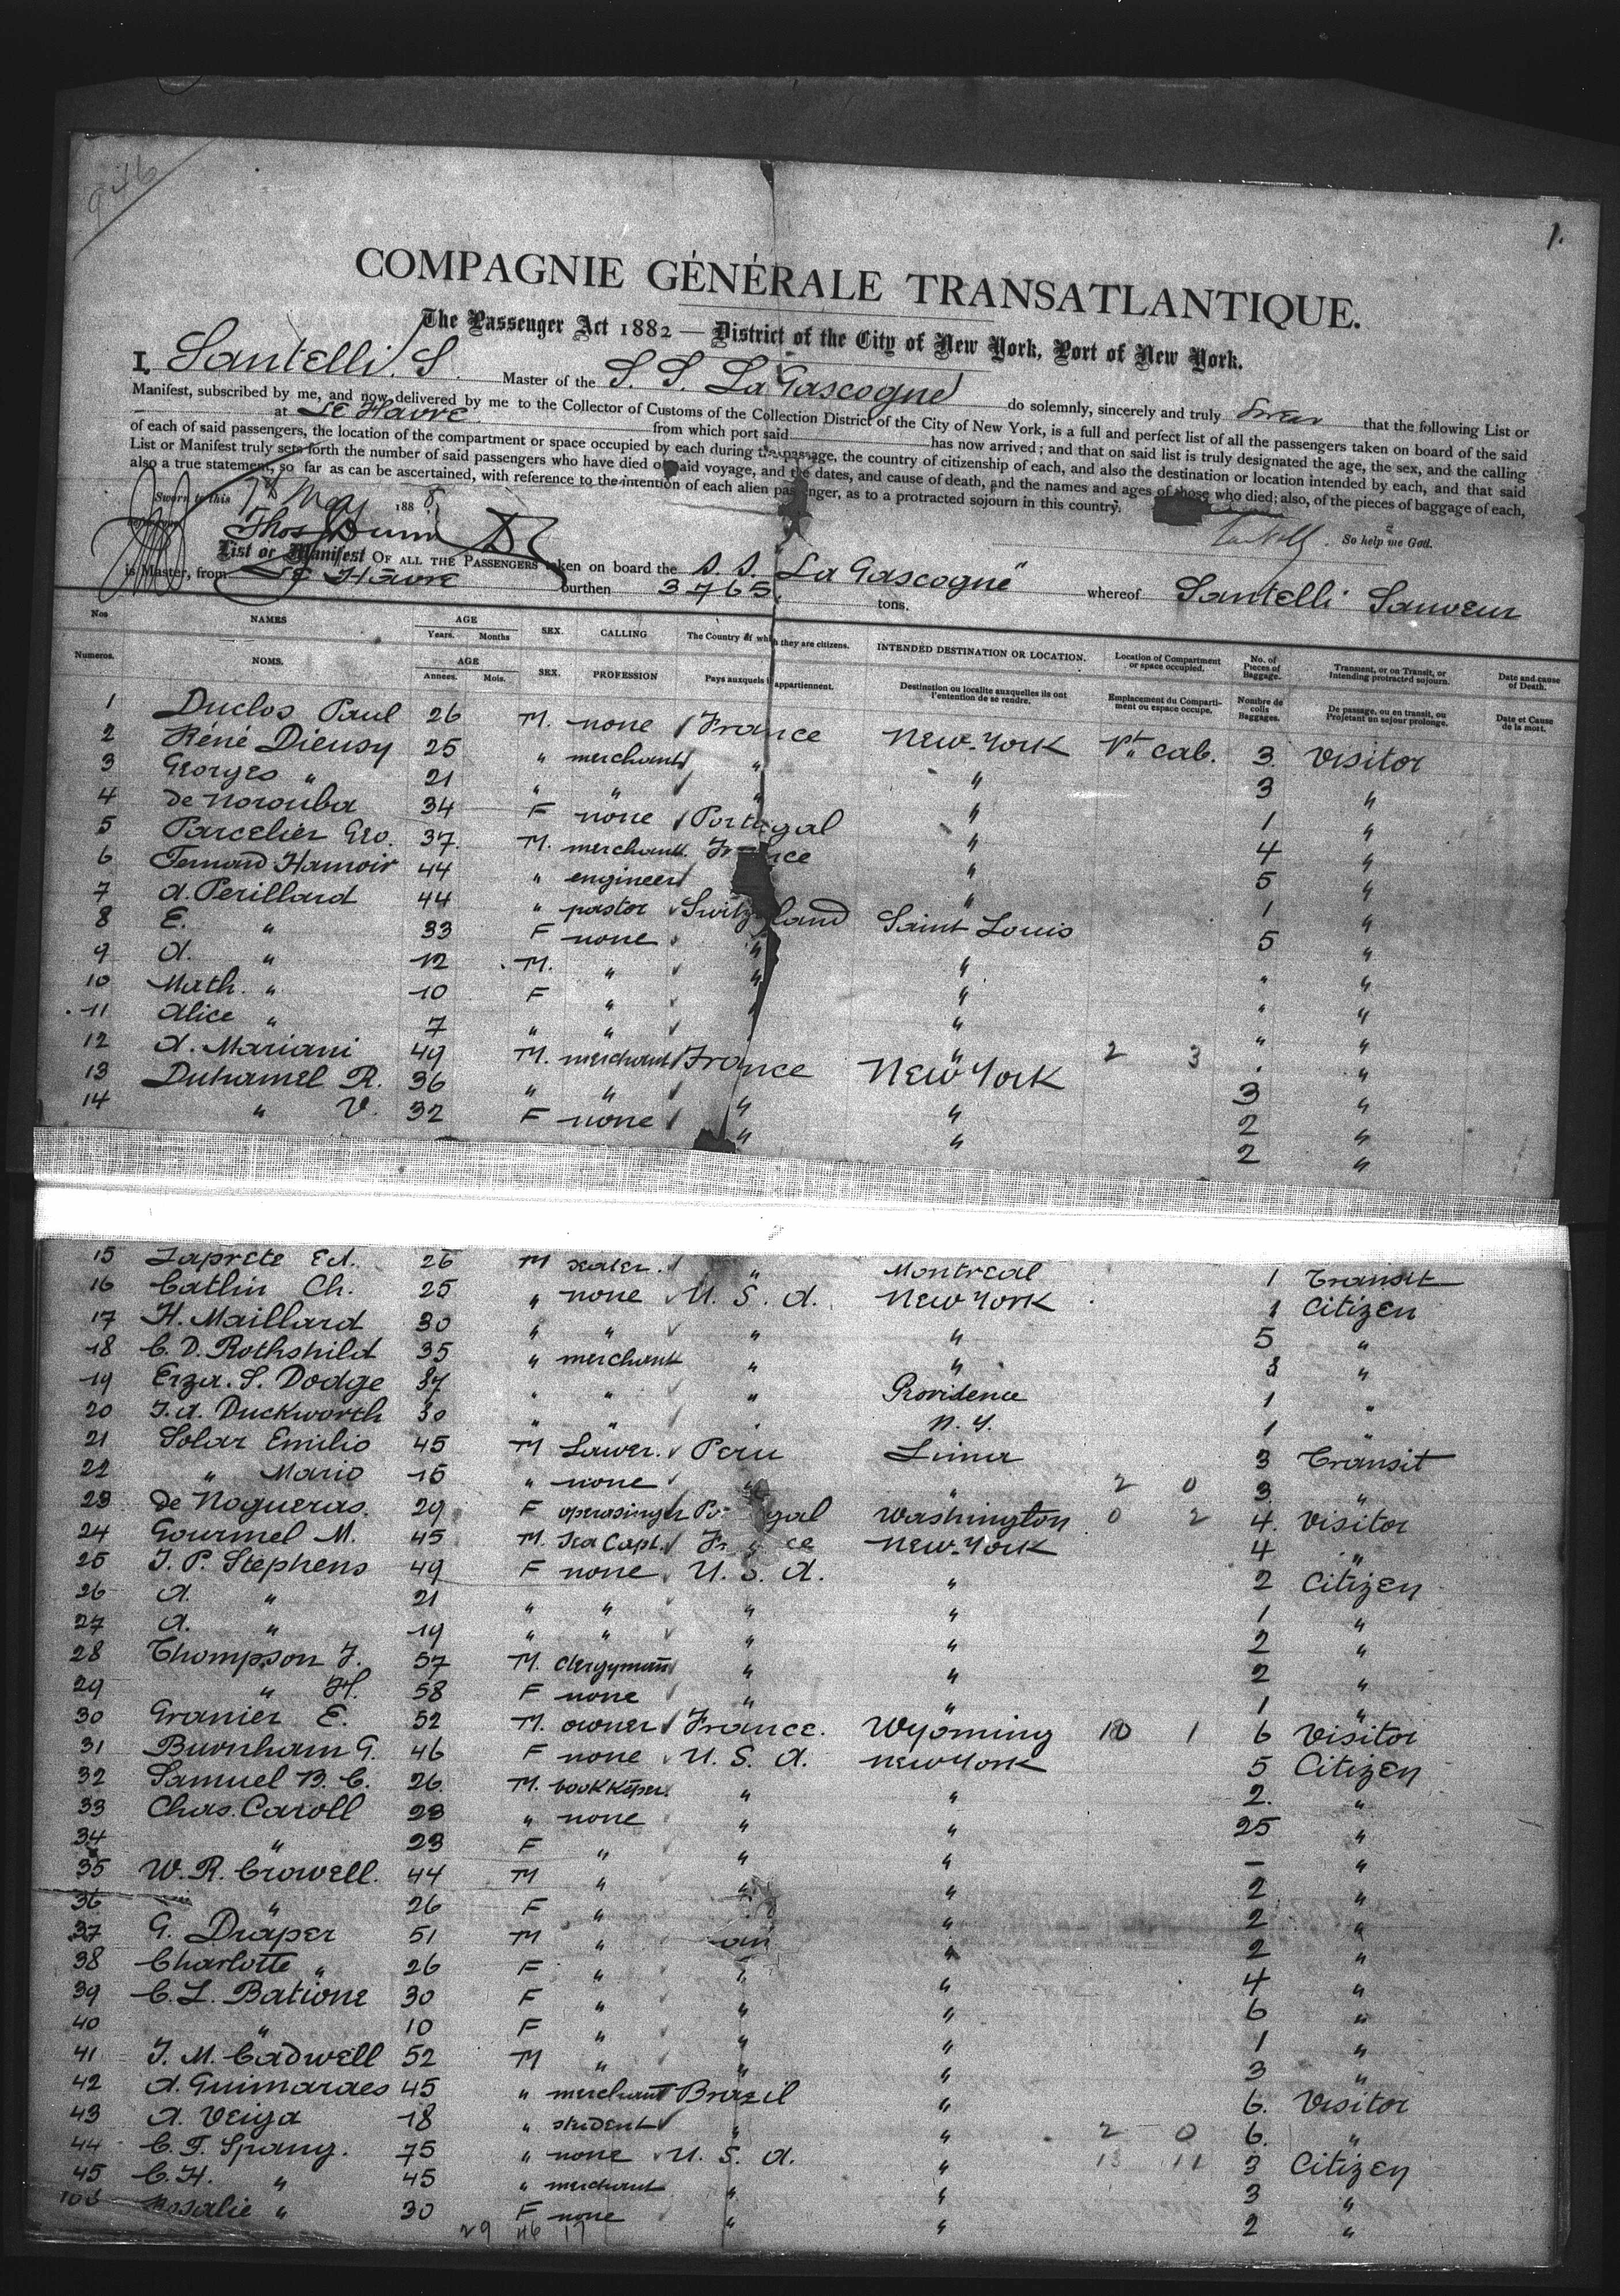 936
1.
COMPAGNIE GÉNÉRALE TRANSATLANTIQUE.
The Passenger Act 1882 — District of the City of New York, Port of New York.
I, Santelli. S. Master of the S. S. La Gascogne do solemnly, sincerely and truly Swear that the following List or
Manifest, subscribed by me, and now delivered by me to the Collector of Customs of the Collection District of the City of New York, is a full and perfect list of all the passengers taken on board of the said
at Le Havre from which port said has now arrived; and that on said list is truly designated the age, the sex, and the calling
of each of said passengers, the location of the compartment or space occupied by each during the passage, the country of citizenship of each, and also the destination or location intended by each, and that said
List or Manifest truly sets forth the number of said passengers who have died on said voyage, and the dates, and cause of death, and the names and ages of those who died; also, of the pieces of baggage of each,
also a true statement, so far as can be ascertained, with reference to the intention of each alien passenger, as to a protracted sojourn in this country.
Sworn to this 7th May 1888
So help me God.
Thos Dunn
List or Manifest OF ALL THE PASSENGERS taken on board the S. S. La Gascogne whereof Santelli Sauveur
is Master, from Le Havre burthen 3765 tons.
Nos NAMES AGE Years. Months SEX. CALLING The Country of which they are citizens. INTENDED DESTINATION OR LOCATION. Location of Compartment or space occupied. No. of Pieces of Baggage. Transient, or on Transit, or Intending protracted sojourn. Date and cause of Death.
Numeros. NOMS. AGE Années. Mois. SEX. PROFESSION Pays auxquels ils appartiennent. Destination ou localite auxquelles ils ont l'entention de se rendre. Emplacement du Compartiment ou espace occupe. Nombre de colis Baggages. De passage, ou en transit, ou Projetant un sejour prolonge. Date et Cause de la mort.
1 Duclos Paul 26 M. none France New-York 1st cab. 3. Visitor
2 Réné Dieusy 25 " merchant " " 3 "
3 Georges " 21 " " " " 1 "
4 de Norouba 34 F none Portugal " 4 "
5 Parcelier Geo. 37. M. merchant France " 5 "
6 Fernand Hamoir 44 " engineer " 1 "
7 A. Perillard 44 " pastor Switzerland Saint Louis 5 "
8 E. " 33 F none " " " "
9 A. " 12 M. " " " " "
10 Math. " 10 F " " " " "
11 Alice " 7 " " " 2 3 " "
12 A. Mariani 49 M. merchant France New York 3 "
13 Duhamel R. 36 " " " " 2 "
14 " V. 32 F none " " 2 "
15 Laprete Ed. 26 M dealer. " Montreal 1 Transit
16 Catlin Ch. 25 " none U. S. A. New York 1 Citizen
17 H. Maillard 30 " " " " 5 "
18 C. D. Rothshild 35 " merchant " " 3 "
19 Erza. S. Dodge 37 " " " Providence 1 "
20 J. A. Duckworth 30 " " " N. Y. 1 "
21 Solar Emilio 45 M Lawer. Peru Lima 3 Transit
22 " Mario 15 " none " " 2 0 3. "
23 de Nogueras. 29 F Portugal Washington 0 2 4. Visitor
24 Gourmel M. 45 M. Sea Capt. France New-York 4 "
25 J. P. Stephens 49 F none U. S. A. " 2 Citizen
26 A. " 21 " " " " 1 "
27 A. " 19 " " " " 2 "
28 Thompson J. 57 M. Clergyman " " 2 "
29 " H. 58 F none " " 1 "
30 Granier E. 52 M. owner France. Wyoming 10 1 6 Visitor
31 Burnham G. 46 F none U. S. A. New York 5 Citizen
32 Samuel B. C. 26 M. bookkeper " " 2. "
33 Chas. Caroll 28 " none " " 25 "
34 " 23 F " " " – "
35 W. R. Crowell. 44 M " " " 2 "
36 " 26 F " " 2 "
37 G. Draper 51 M " " 2 "
38 Charlotte " 26 F " " " 4 "
39 C. L. Batione 30 F " " " 6 "
40 " 10 F " " " 1 "
41 J. M. Cadwell 52 M " " " 3 "
42 A. Guimaraes 45 " merchant Brazil " 6. Visitor
43 A. Veiga 18 " student " " 2 0 6. "
44 C. F. Spang. 75 " none U. S. A. " 13 11 3 Citizen
45 C. H. " 45 " merchant " " 3 "
Rosalie " 30 F none " " 2 "
29 46 17